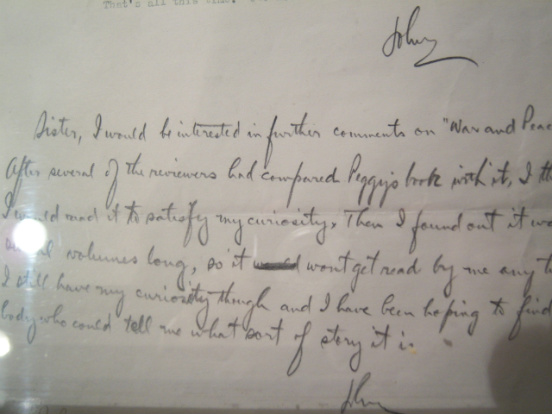 That's all this time.
John
Sister, I would be interested in further comments on "War and Peac
After several of the reviewers had compared Peggy's book with it, I th
I would read it to satisfy my curiosity. Then I found out it wa
volumes long, so it won't get read by me any t
I still have my curiosity though and I have been hoping to find
body who could tell me what sort of story it is.
John